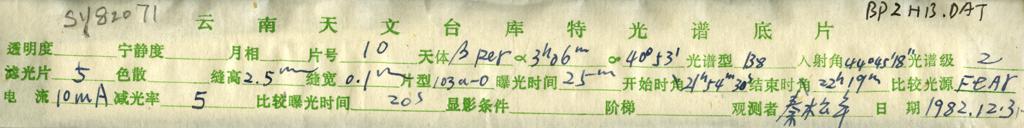 SY82071 云南天文台库特光谱底片 BPZHB.DAT
透明度 宁静度 月相 片号 10 天体 β per α 3ʰ06ᵐ α 40°53' 光谱型 B8 入射角 44°45'18" 光谱级 2
滤光片 5 色散 缝高 2.5ᵐᵐ 缝宽 0.1ᵐᵐ 片型 103a-O 曝光时间 25ᵐ 开始时角 21ʰ54ᵐ30ˢ 结束时角 22ʰ19ᵐ 比较光源 FeAr
电流 10mA 减光率 5 比较曝光时间 20ˢ 显影条件 阶梯 观测者 日期 1982.12.3